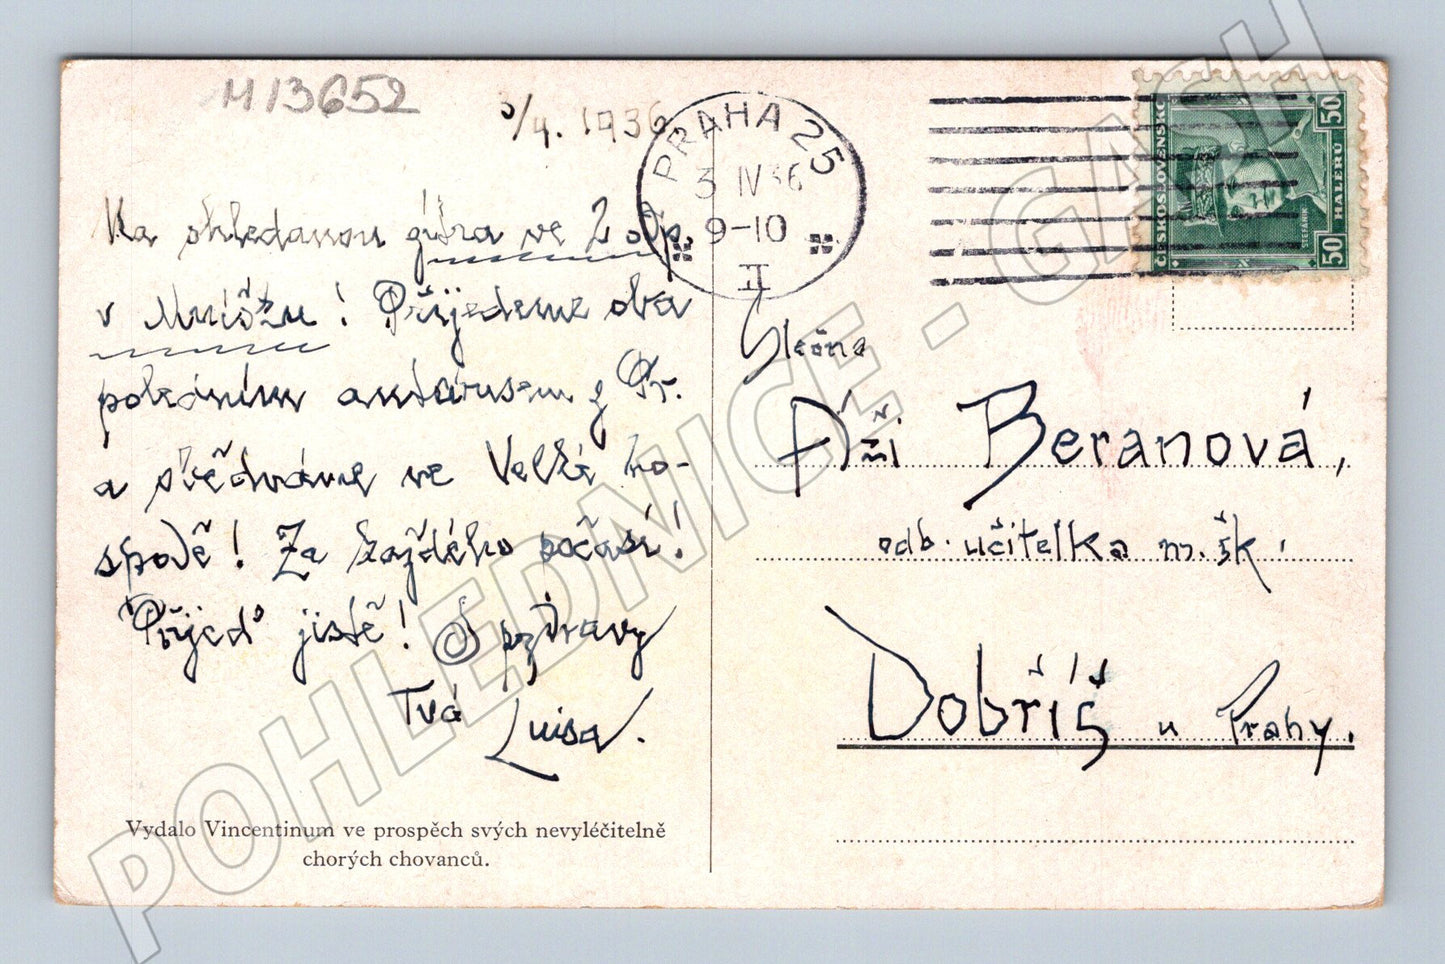 M 13652
3/4. 1936
Na shledanou zítra ve 2 odp.
v Mníšku! Přijedeme oba
poledním autobusem z Pr.
a svědváme ve Velké ho-
spodě! Za každého počasí!
Přijeď jistě! S pozdravy
Tvá Luisa.
Vydalo Vincentinum ve prospěch svých nevyléčitelně
chorých chovanců.
PRAHA 25
3 IV 36
9-10
II
ČESKOSLOVENSKO
50 HALÉŘŮ 50
ŠTEFÁNIK
Slečna
Beranová,
odb. učitelka m. šk.
Dobříš u Prahy.
POHLEDNICE - GASH